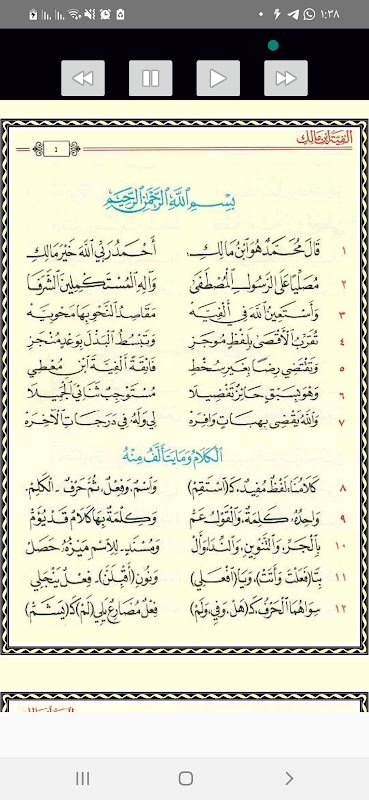 ١:٣٨
ألفية ابن مالك
1
بِسْمِ ٱللَّهِ ٱلرَّحْمَٰنِ ٱلرَّحِيمِ
١ قَالَ مُحَمَّدٌ هُوَ ابْنُ مَالِكِ: أَحْمَدُ رَبِّي اللَّهَ خَيْرَ مَالِكِ
٢ مُصَلِّيًا عَلَى الرَّسُولِ الْمُصْطَفَىٰ وَآلِهِ الْمُسْتَكْمِلِينَ الشَّرَفَا
٣ وَأَسْتَعِينُ اللَّهَ فِي أَلْفِيَّهْ مَقَاصِدُ النَّحْوِ بِهَا مَحْوِيَّهْ
٤ تُقَرِّبُ الْأَقْصَىٰ بِلَفْظٍ مُوجَزِ وَتَبْسُطُ الْبَذْلَ بِوَعْدٍ مُنْجَزِ
٥ وَتَقْتَضِي رِضًا بِغَيْرِ سُخْطِ فَائِقَةً أَلْفِيَّةَ ابْنِ مُعْطِي
٦ وَهْوَ بِسَبْقٍ حَائِزٌ تَفْضِيلَا مُسْتَوْجِبٌ ثَنَائِيَ الْجَمِيلَا
٧ وَاللَّهُ يَقْضِي بِهِبَاتٍ وَافِرَهْ لِي وَلَهُ فِي دَرَجَاتِ الْآخِرَهْ
الْكَلَامُ وَمَا يَتَأَلَّفُ مِنْهُ
٨ كَلَامُنَا: لَفْظٌ مُفِيدٌ، كَـ(اسْتَقِمْ) وَاسْمٌ، وَفِعْلٌ، ثُمَّ حَرْفٌ - الْكَلِمْ
٩ وَاحِدُهُ: كَلِمَةٌ، وَالْقَوْلُ عَمّْ وَكِلْمَةٌ بِهَا كَلَامٌ قَدْ يُؤَمّْ
١٠ بِالْجَرِّ، وَالتَّنْوِينِ، وَالنِّدَا، وَأَلْ وَمُسْنَدٍ - لِلِاسْمِ مَيْزُهُ حَصَلْ
١١ بِتَا (فَعَلْتَ وَأَتَتْ)، وَيَا (افْعَلِي) وَنُونِ (أَقْبِلَنَّ) - فِعْلٌ يَنْجَلِي
١٢ سِوَاهُمَا الْحَرْفُ، كَـ(هَلْ، وَفِي، وَلَمْ) فِعْلٌ مُضَارِعٌ يَلِي (لَمْ) كَـ(يَشَمّْ)